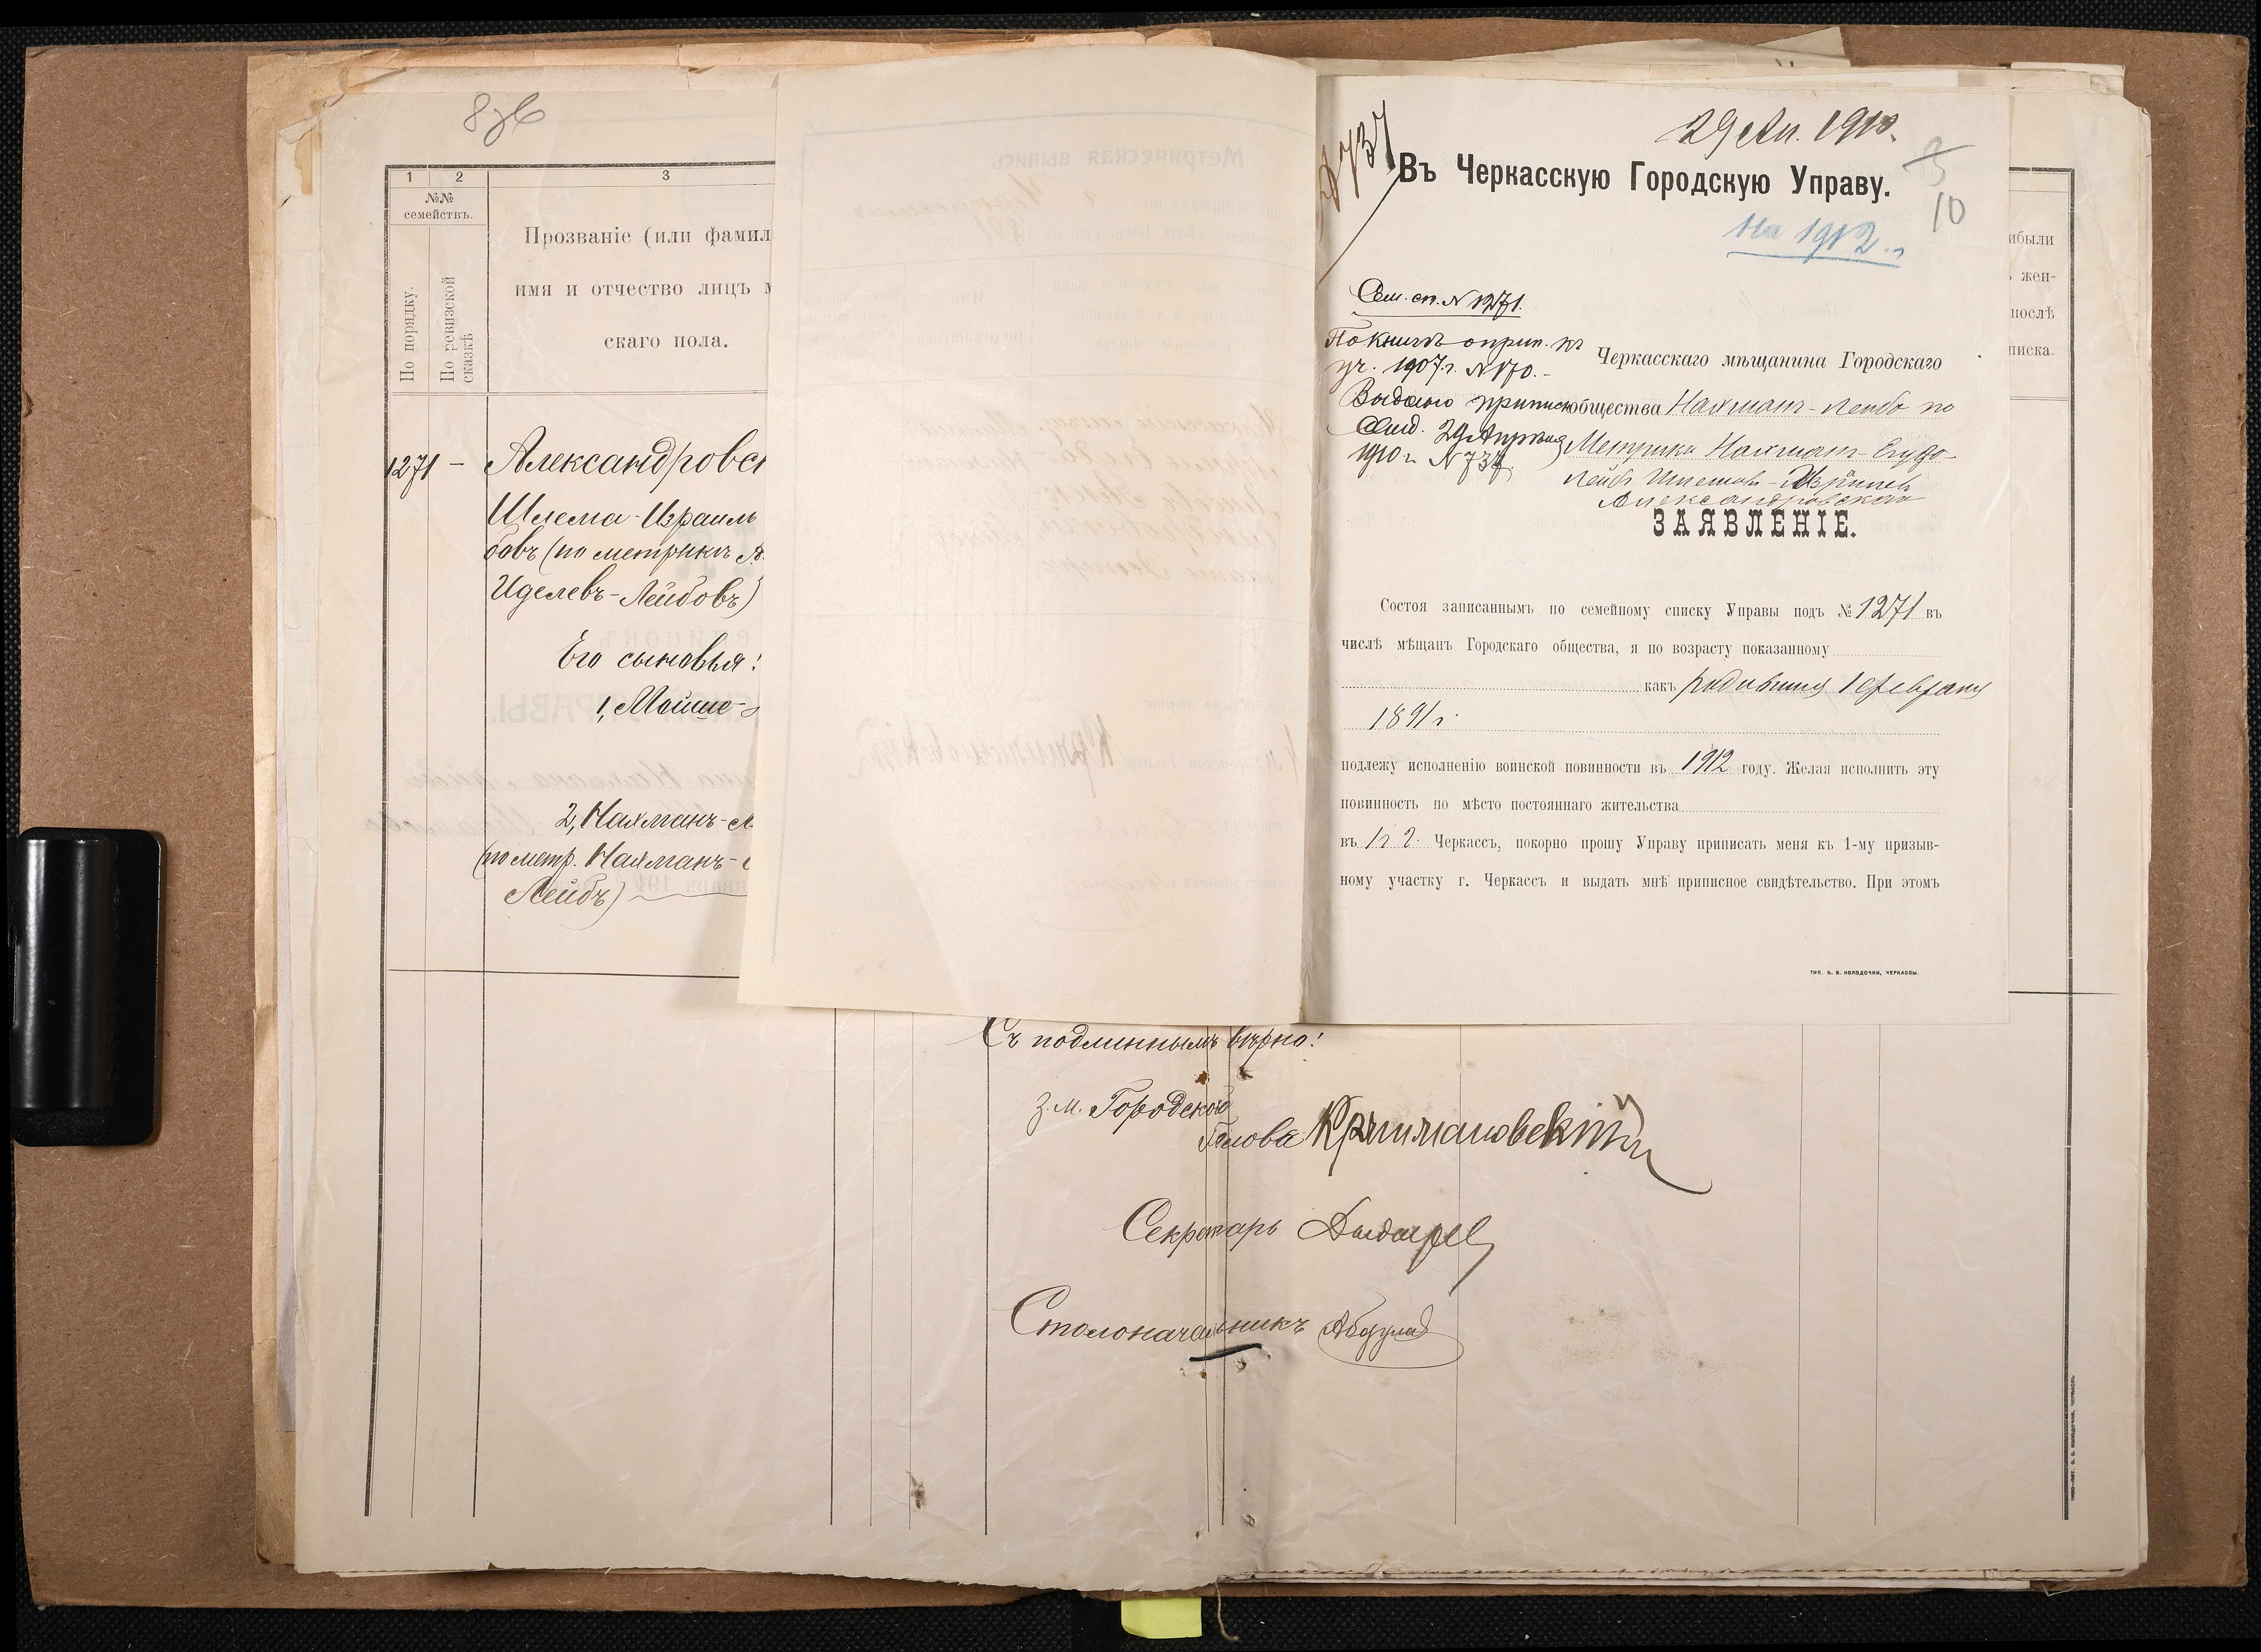 1 2 3
№№
семействъ.
По порядку.
По ревизской
сказкѣ
Прозваніе (или фамил
имя и отчество лицъ м
скаго пола.
1271 - Александровск
Шлема-Израиль
бовъ (по метрикѣ
Иделевъ-Лейбовъ)
Его сыновья:
1, Мойше-
2, Нахманъ-
(по метр. Нахманъ-
Лейбъ)
Съ подлиннымъ вѣрно:
З. М. Городского
Головы
Секретарь
Столоначальникъ
29 Ап. 1910.
737
Въ Черкасскую Городскую Управу.
10
На 1912 г.
Сем. сп. N 1271.
По книгѣ о прип. къ
уч. 1907 г. N 170.-
Выдано припис
Свид. 29 Апрѣля
1910 г. N 737.
Черкасскаго мѣщанина Городскаго
общества Нахман-Лейба по
Метрики Нахман-
Лейб Шлемов-Израилев
Александровскаго
ЗАЯВЛЕНІЕ.
Состоя записаннымъ по семейному списку Управы подъ № 1271 въ
числѣ мѣщанъ Городскаго общества, я по возрасту показанному
какъ родившиися 1 февраля
1891 г.
подлежу исполненію воинской повинности въ 1912 году. Желая исполнить эту
повинность по мѣсто постояннаго жительства
въ г. Черкассъ, покорно прошу Управу приписать меня къ 1-му призыв-
ному участку г. Черкассъ и выдать мнѣ приписное свидѣтельство. При этомъ
ТИП. В. В. КОЛОДОЧКИ, ЧЕРКАССЫ.
ибыли
жен-
послѣ
писка.